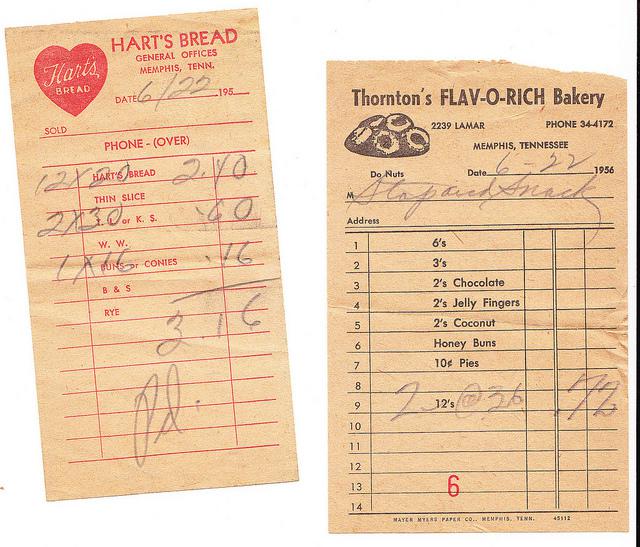 Hart's
BREAD
HART'S BREAD
GENERAL OFFICES
MEMPHIS, TENN.
DATE 6/22 195
SOLD
PHONE - (OVER)
12X20 HART'S BREAD 2.40
THIN SLICE
2X30 or K. S. .60
W. W.
1X16 BUNS or CONIES .16
B & S
RYE
3.16
Pd.
Thornton's FLAV-O-RICH Bakery
2239 LAMAR PHONE 34-4172
MEMPHIS, TENNESSEE
Do Nuts Date 6-22 1956
M Snack
Address
1 6's
2 3's
3 2's Chocolate
4 2's Jelly Fingers
5 2's Coconut
6 Honey Buns
7 10¢ Pies
8
9 2 12's @ 36 .72
10
11
12
13 6
14
MAYER MYERS PAPER CO., MEMPHIS, TENN. 45112